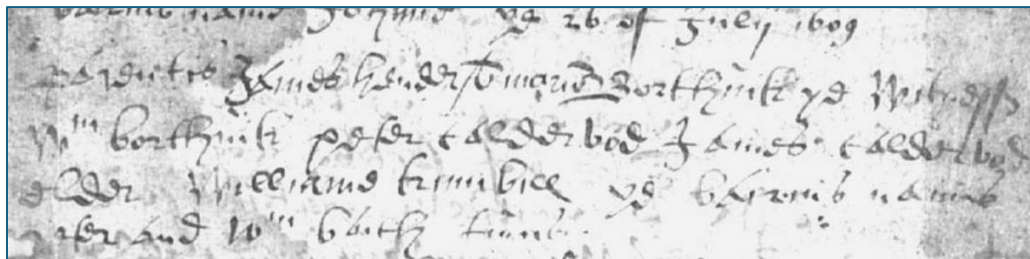 bairnis name Johnne ye 26 of Julij 1609
parentis James hendersō mariō Borthuik ye witnesss
Wm borthuik peter caldervod James caldervod
elder Williame trumbill ye bairnis names
peter and Wm baith tuins